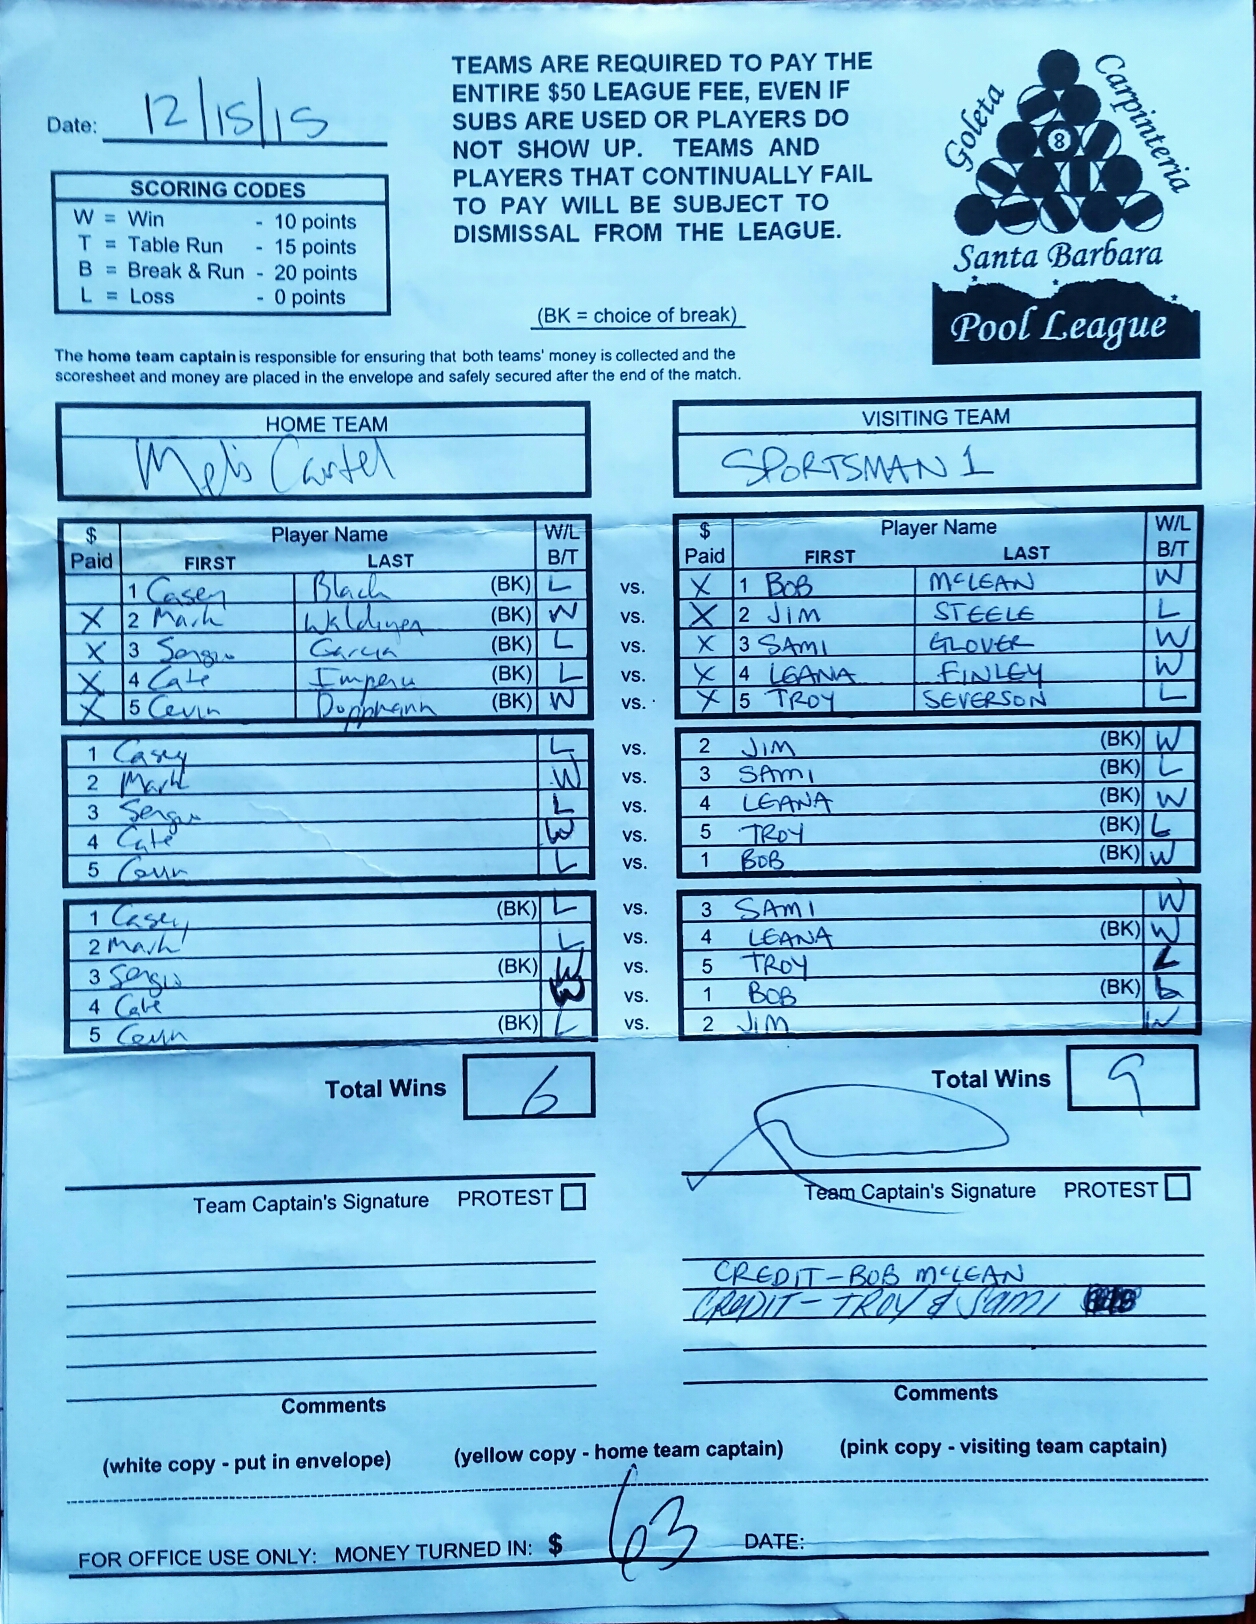 Date: 12/15/15
TEAMS ARE REQUIRED TO PAY THE
ENTIRE $50 LEAGUE FEE, EVEN IF
SUBS ARE USED OR PLAYERS DO
NOT SHOW UP. TEAMS AND
PLAYERS THAT CONTINUALLY FAIL
TO PAY WILL BE SUBJECT TO
DISMISSAL FROM THE LEAGUE.
Goleta
Carpinteria
8
Santa Barbara
Pool League
SCORING CODES
W = Win - 10 points
T = Table Run - 15 points
B = Break & Run - 20 points
L = Loss - 0 points
(BK = choice of break)
The home team captain is responsible for ensuring that both teams' money is collected and the
scoresheet and money are placed in the envelope and safely secured after the end of the match.
HOME TEAM VISITING TEAM
Mel's Cartel SPORTSMAN 1
$ Player Name W/L $ Player Name W/L
Paid FIRST LAST B/T Paid FIRST LAST B/T
1 Casey Black (BK) L vs. X 1 BOB McLEAN W
X 2 Mark (BK) W vs. X 2 JIM STEELE L
X 3 Sergio Garcia (BK) L vs. X 3 SAMI GLOVER W
X 4 Cate (BK) L vs. X 4 LEANA FINLEY W
X 5 (BK) W vs. X 5 TROY SEVERSON L
1 Casey L vs. 2 JIM (BK) W
2 Mark W vs. 3 SAMI (BK) L
3 Sergio L vs. 4 LEANA (BK) W
4 Cate W vs. 5 TROY (BK) L
5 L vs. 1 BOB (BK) W
1 Casey (BK) L vs. 3 SAMI W
2 Mark L vs. 4 LEANA (BK) W
3 Sergio (BK) W vs. 5 TROY L
4 Cate W vs. 1 BOB (BK) L
5 (BK) L vs. 2 JIM W
Total Wins 6 Total Wins 9
Team Captain's Signature PROTEST Team Captain's Signature PROTEST
CREDIT - BOB McLEAN
CREDIT - TROY & SAMI
Comments Comments
(white copy - put in envelope) (yellow copy - home team captain) (pink copy - visiting team captain)
FOR OFFICE USE ONLY: MONEY TURNED IN: $ 63 DATE: